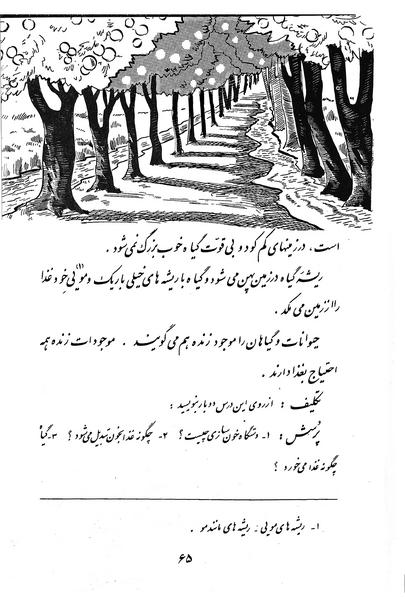 است. در زمینهای کم کود و بی قوت گیاه خوب بزرگ نمی شود.
ریشهٔ گیاه در زمین پهن می شود و گیاه با ریشه های خیلی باریک و مویی(۱) خود غذا
را از زمین می مکد.
حیوانات و گیاهان را موجود زنده هم می گویند. موجودات زنده همه
احتیاج بغذا دارند.
تکلیف : از روی این درس دو بار بنویسید :
پرسش : ۱- دستگاه خون سازی چیست ؟ ۲- چگونه غذا بخون تبدیل می شود ؟ ۳- گیاه
چگونه غذا می خورد ؟
۱- ریشه های مویی = ریشه های مانند مو .
۶۵